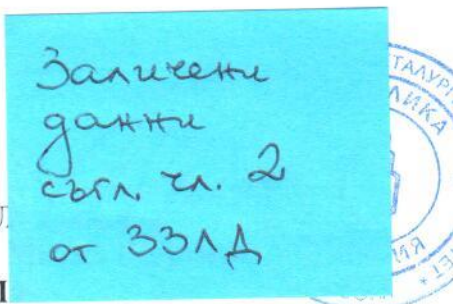 Заличени
данни
съгл. чл. 2
от ЗЗЛД